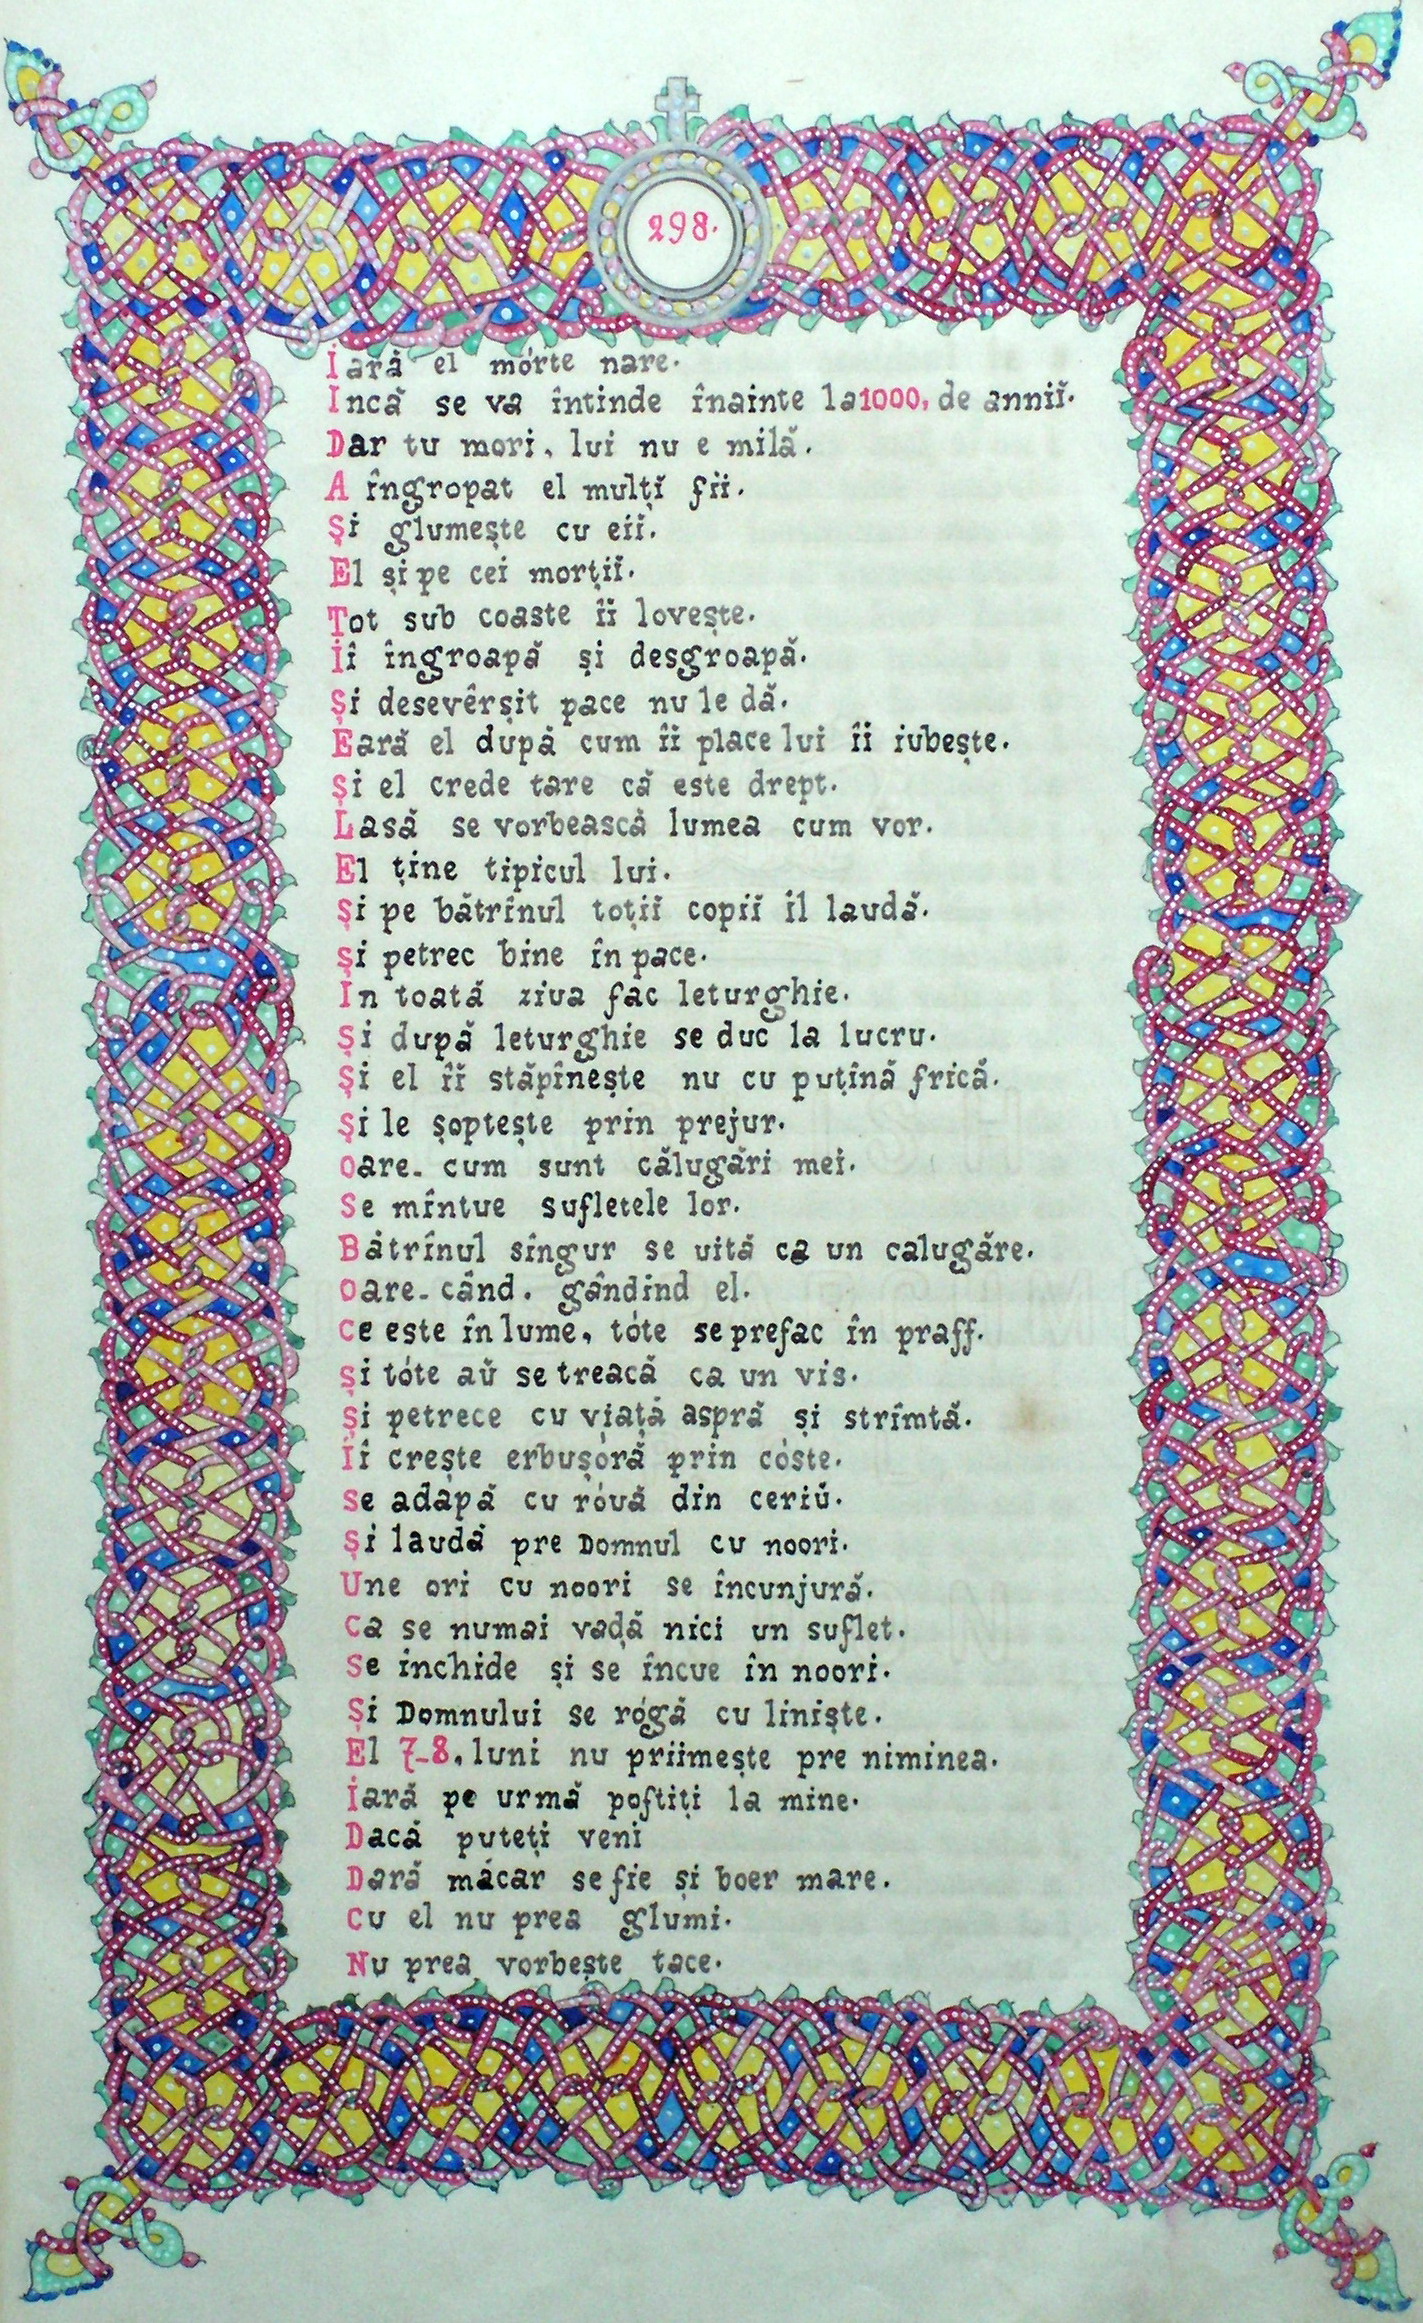 298.
Iară el mórte nare.
Incă se va întinde înainte la 1000, de anniĭ.
Dar tu mori, lui nu e milă.
A îngropat el mulțĭ fii.
Și glumește cu eiĭ.
El și pe cei morțiĭ.
Tot sub coaste îĭ lovește.
Iî îngroapă și desgroapă.
Și desevêrșit pace nu le dă.
Eară el după cum îi place lui îi iubește.
Și el crede tare că este drept.
Lasă se vorbească lumea cum vor.
El ține tipicul lui.
Și pe bătrînul toțiĭ copiĭ îl laudă.
Și petrec bine în pace.
In toată ziua fac leturghie.
Și după leturghie se duc la lucru.
Și el îĭ stăpînește nu cu puțină frică.
Și le șoptește prin prejur.
Oare-cum sunt călugări mei.
Se mîntue sufletele lor.
Bătrînul singur se uită ca un calugăre.
Oare-când, gândind el.
Ce este în lume, tóte se prefac în praff.
Și tóte aŭ se treacă ca un vis.
Și petrece cu viață aspră și strîmtă.
Iî crește erbușóră prin cóste.
Se adapă cu róuă din ceriŭ.
Și laudă pre Domnul cu noori.
Une ori cu noori se încunjură.
Ca se numai vadă nici un suflet.
Se inchide și se încue în noori.
Și Domnului se rógă cu liniște.
El 7-8, luni nu priimește pre niminea.
Iară pe urmă poftiți la mine.
Dacă puteți veni
Dară măcar se fie și boer mare.
Cu el nu prea glumi.
Nu prea vorbește tace.